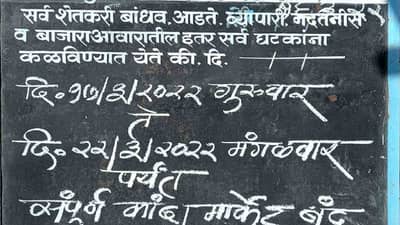 सर्व शेतकरी बांधव, आडते, व्यापारी, मदतनीस
व बाजाराआवारातील इतर सर्व घटकांना
कळविण्यात येते की. दि.
दि.१७/३/२०२२ गुरुवार
ते
दि.२२/३/२०२२ मंगळवार
पर्यंत
संपूर्ण कांदा मार्केट बंद